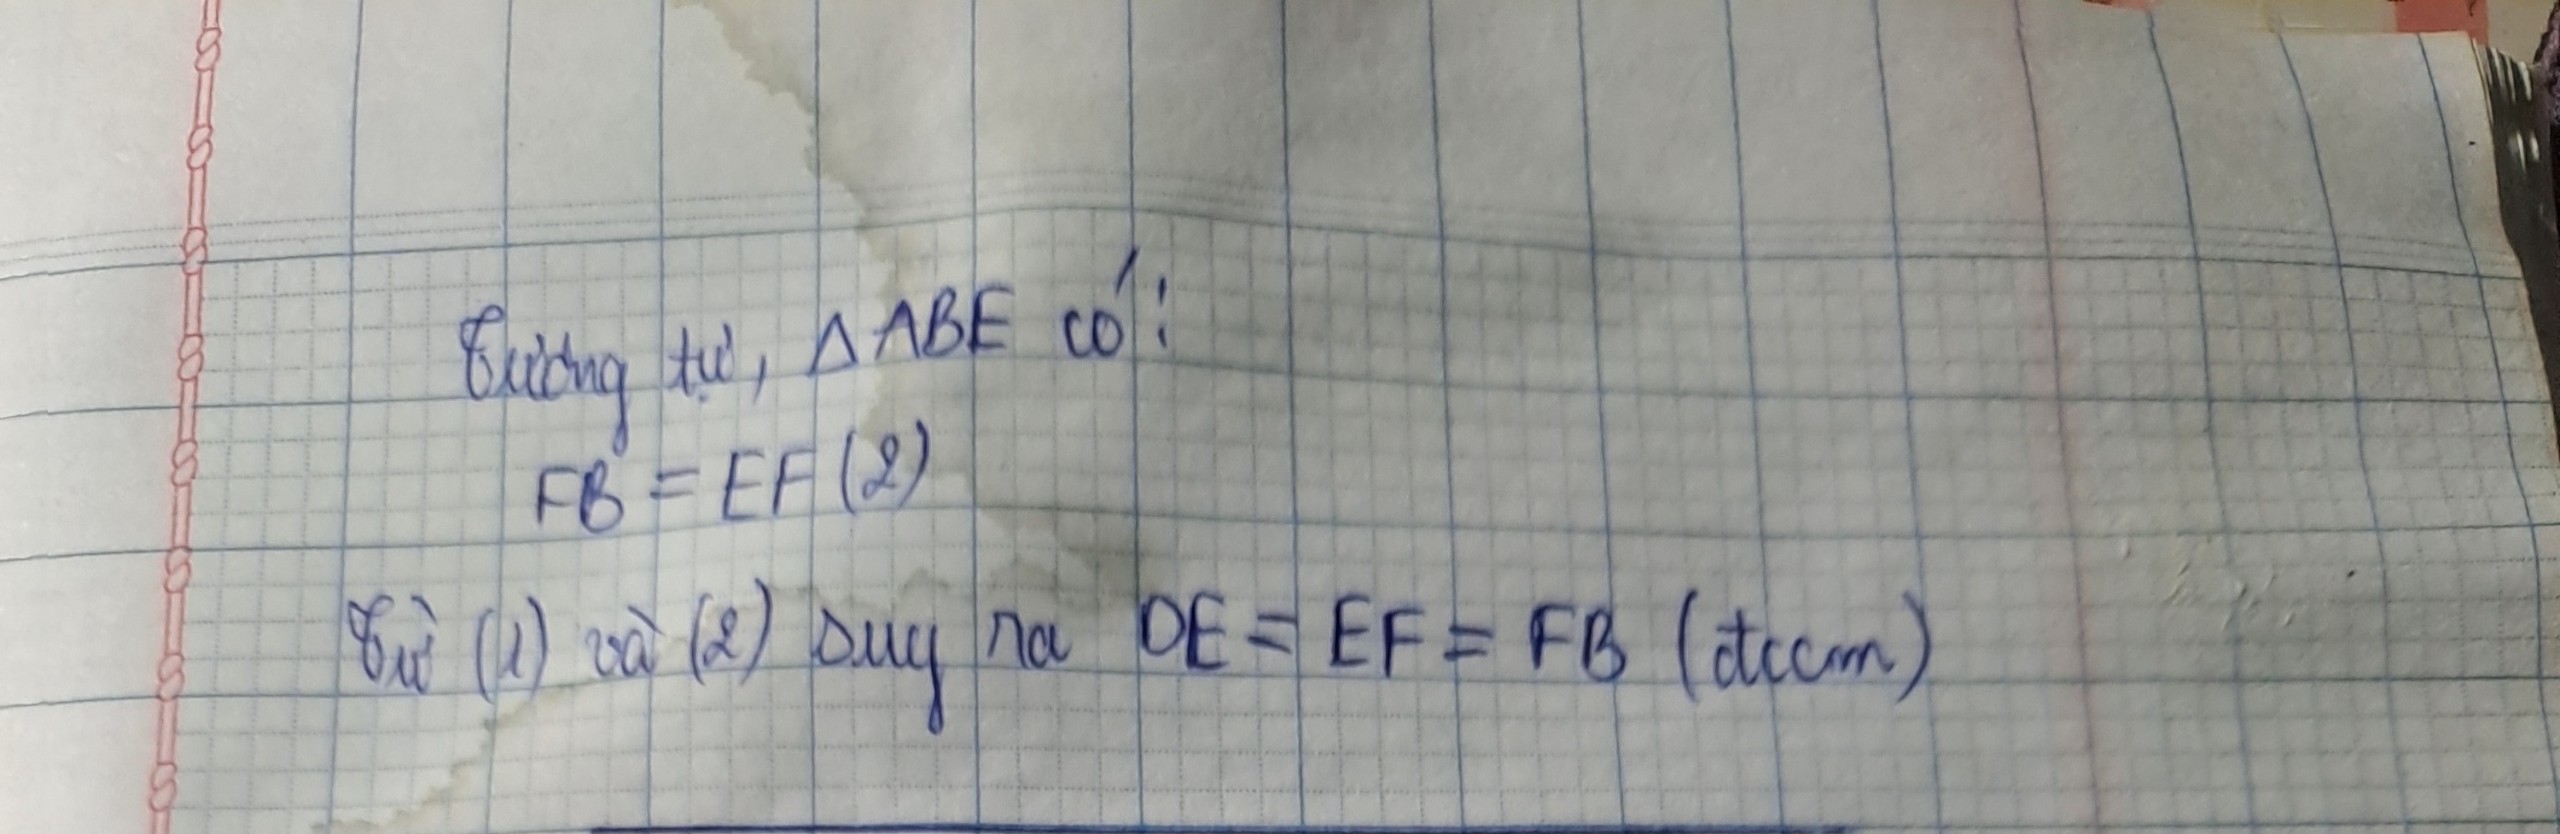 Tương tự, △ABE có:
FB = EF (2)
Từ (1) và (2) suy ra DE = EF = FB (đccm)